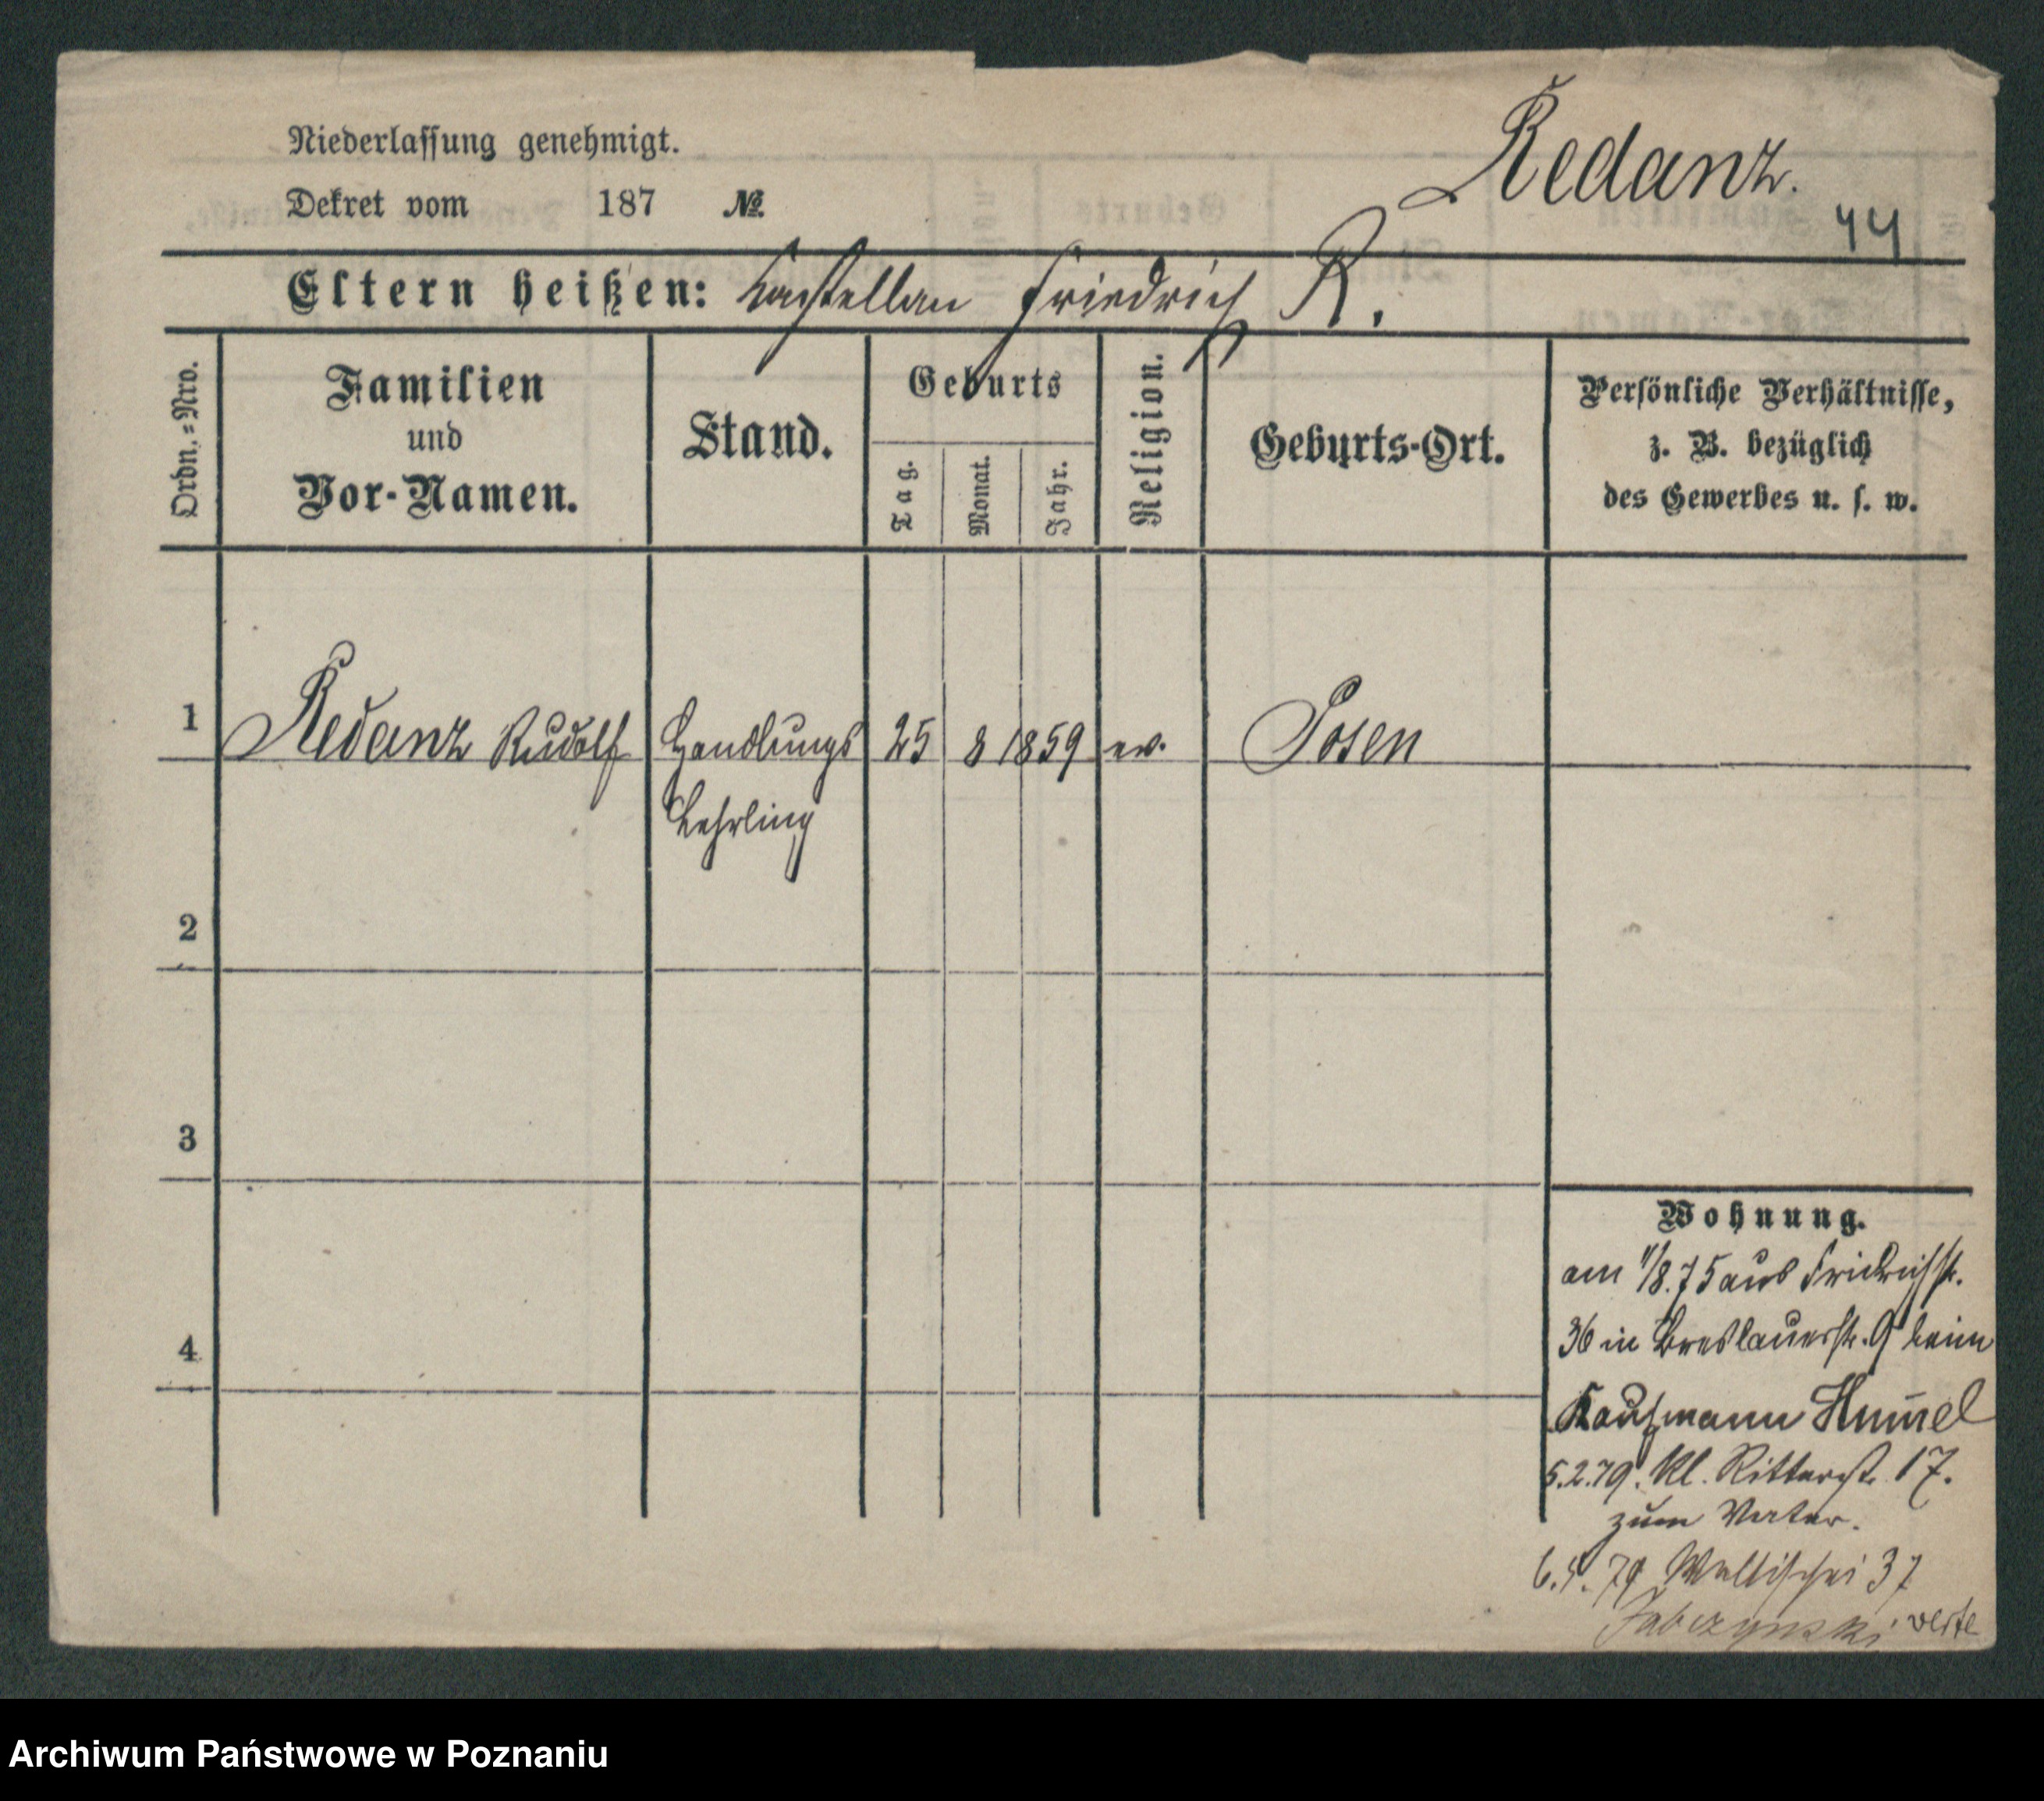 Niederlassung genehmigt.
Dekret vom 187 №
Redanz.
44
Eltern heißen: Castellan Friedrich R.
Ordn.=Nro.
Familien
und
Vor-Namen.
Stand.
Geburts
Tag.
Monat.
Jahr.
Religion.
Geburts-Ort.
Persönliche Verhältnisse,
z. B. bezüglich
des Gewerbes u. s. w.
1 Redanz Rudolf Handlungs 25 8 1859 ev. Posen
Lehrling
2
3
4
Wohnung.
am 1/8.75 aus Friedrichstr.
36 in Breslauerstr. 9 beim
Kaufmann Hum̄el
5.2.79. Kl. Ritterstr. 17.
zum Vater.
79 Wallischei 37
Jabczynski verte
Archiwum Państwowe w Poznaniu